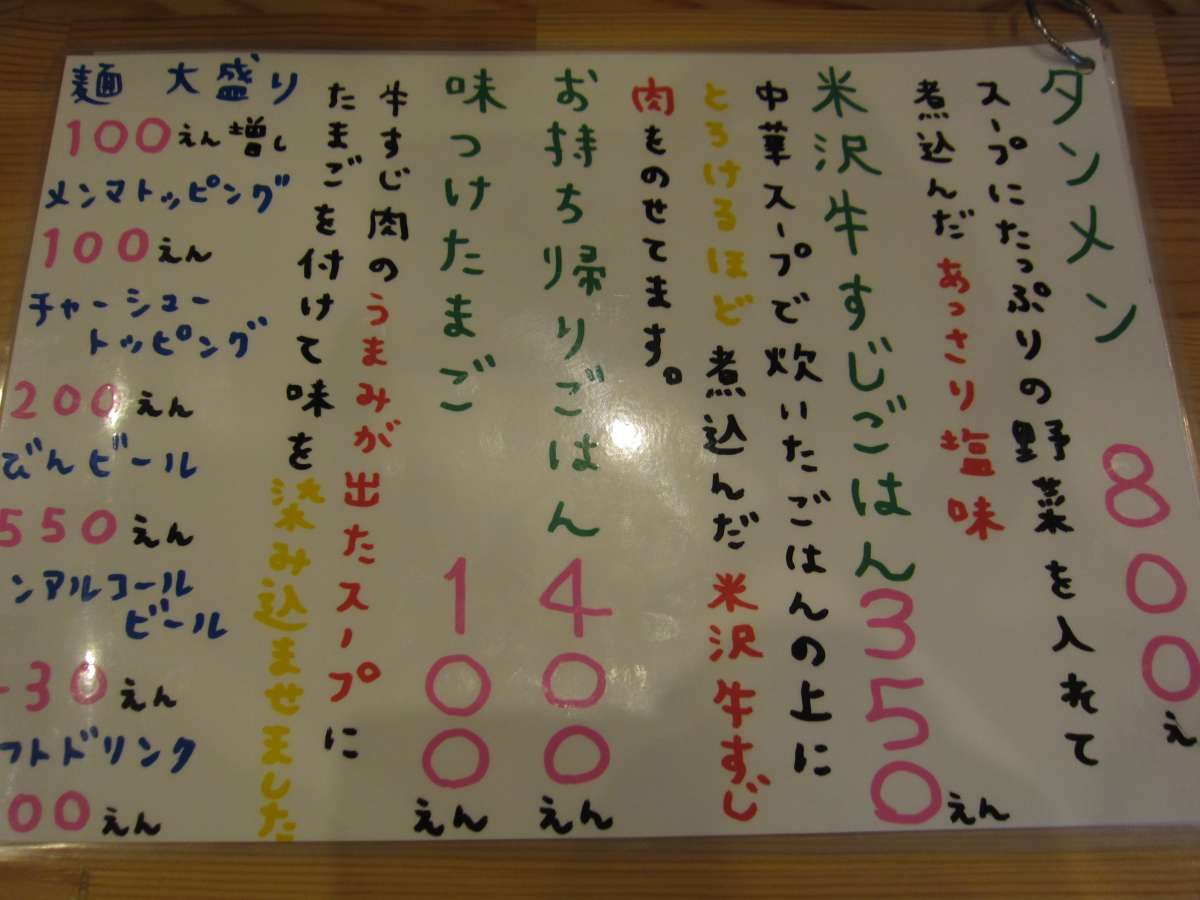 タンメン 800え
スープにたっぷりの野菜を入れて
煮込んだあっさり塩味
米沢牛すじごはん 350えん
中華スープで炊いたごはんの上に
とろけるほど煮込んだ米沢牛すじ
肉をのせてます。
お持ち帰りごはん 400えん
味つけたまご 100えん
牛すじ肉のうまみが出たスープに
たまごを付けて味を染み込ませました
麺 大盛り
100えん増し
メンマトッピング
100えん
チャーシュー
トッピング
200えん
びんビール
550えん
ンアルコール
ビール
30えん
フトドリンク
00えん